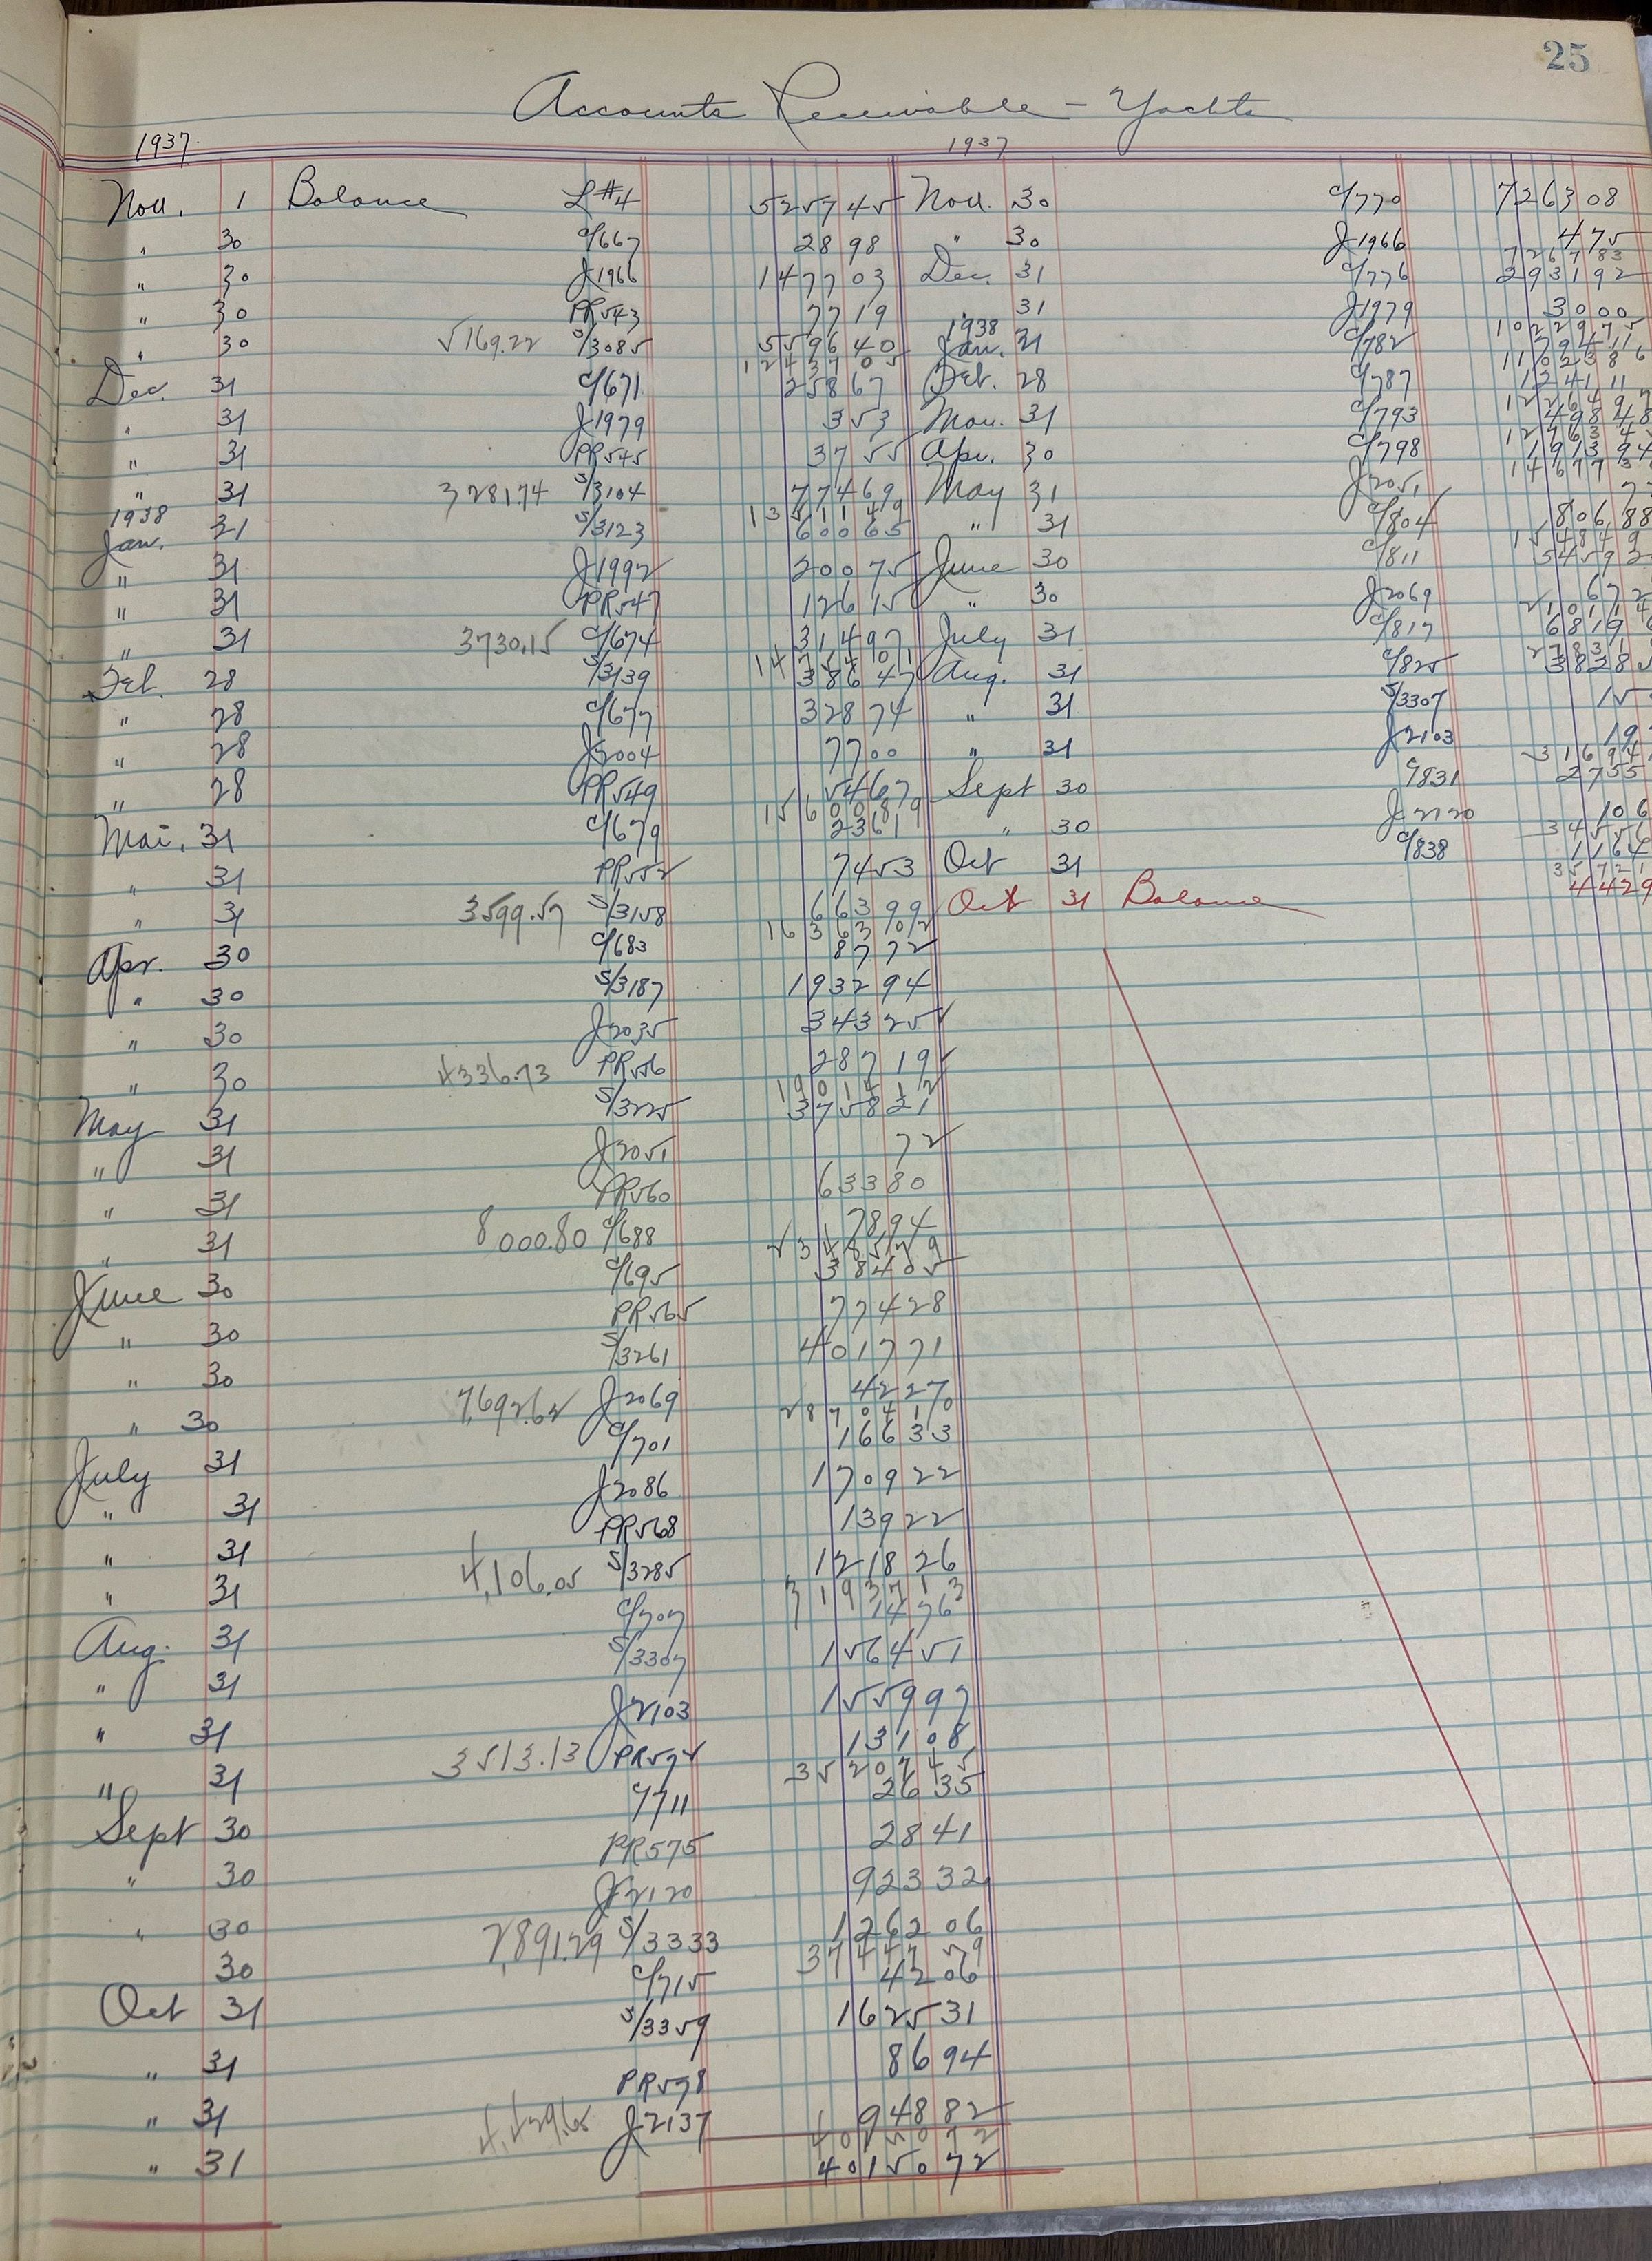 25
Accounts Receivable – Yachts
1937 1937
Nov. 1 Balance L#4 5257 45 Nov. 30 C/770 7263 08
" 30 C/667 28 98 " 30 J1966 4 75
7267 83
" 30 J1966 1477 03 Dec. 31 C/776 2931 92
" 30 PR543 77 19 31 J1979 30 00
10229 75
" 30 5169.22 S/3085 5596 40 1938 Jan. 31 C/782 794 11
12437 05 11023 86
Dec. 31 C/671 258 67 Feb. 28 C/787 1241 11
12264 97
" 31 J1979 3 53 Mar. 31 C/793 498 48
12763 4
" 31 PR545 37 55 Apr. 30 C/798 1913 94
14677 3
" 31 3281.74 S/3104 774 69 May 31 J2051 7
13511 49
1938 Jan. 31 S/3123 600 65 " 31 C/804 806 88
15484 9
" 31 J1992 200 75 June 30 C/811 5459 2
" 31 PR547 126 15 " 30 J2069 67 2
21011 4
" 31 3730.15 C/674 314 97 July 31 C/817 6819
14754 01 27831
Feb. 28 S/3139 386 47 Aug. 31 C/825 3828
" 28 C/677 328 74 " 31 S/3307 15
" 28 J2004 77 00 " 31 J2103 19
31694
" 28 PR549 54 67 Sept 30 C/831 2755
15600 89
Mar. 31 C/679 23 61 " 30 J2120 106
34556
" 31 PR552 74 53 Oct 31 C/838 1164
35721
" 31 3599.57 S/3158 663 99 Oct 31 Balance 4429
16363 02
Apr. 30 C/683 87 72
" 30 S/3187 1932 94
" 30 J2035 343 25
" 30 4336.73 PR556 287 19
19014 12
May 31 S/3225 3758 21
" 31 J2051 72
" 31 PR560 633 80
" 31 8000.80 C/688 78 94
23485 79
June 30 C/695 384 05
" 30 PR565 774 28
" 30 S/3261 4017 71
" 30 7,692.62 J2069 42 27
28704 10
July 31 C/701 166 33
" 31 J2086 1709 22
" 31 PR568 139 22
" 31 4,106.05 S/3285 1218 26
31937 13
Aug. 31 C/707 14 76
" 31 S/3307 1564 51
" 31 J2103 1559 97
" 31 3513.13 PR572 131 08
35207 45
Sept 30 C/711 26 35
" 30 PR575 28 41
" 30 J2120 923 32
30 2,891.29 S/3333 1262 06
37447 59
Oct 31 C/715 42 06
" 31 S/3359 1625 31
" 31 PR578 86 94
" 31 4,429.65 J2137 948 82
40150 72
40150 72